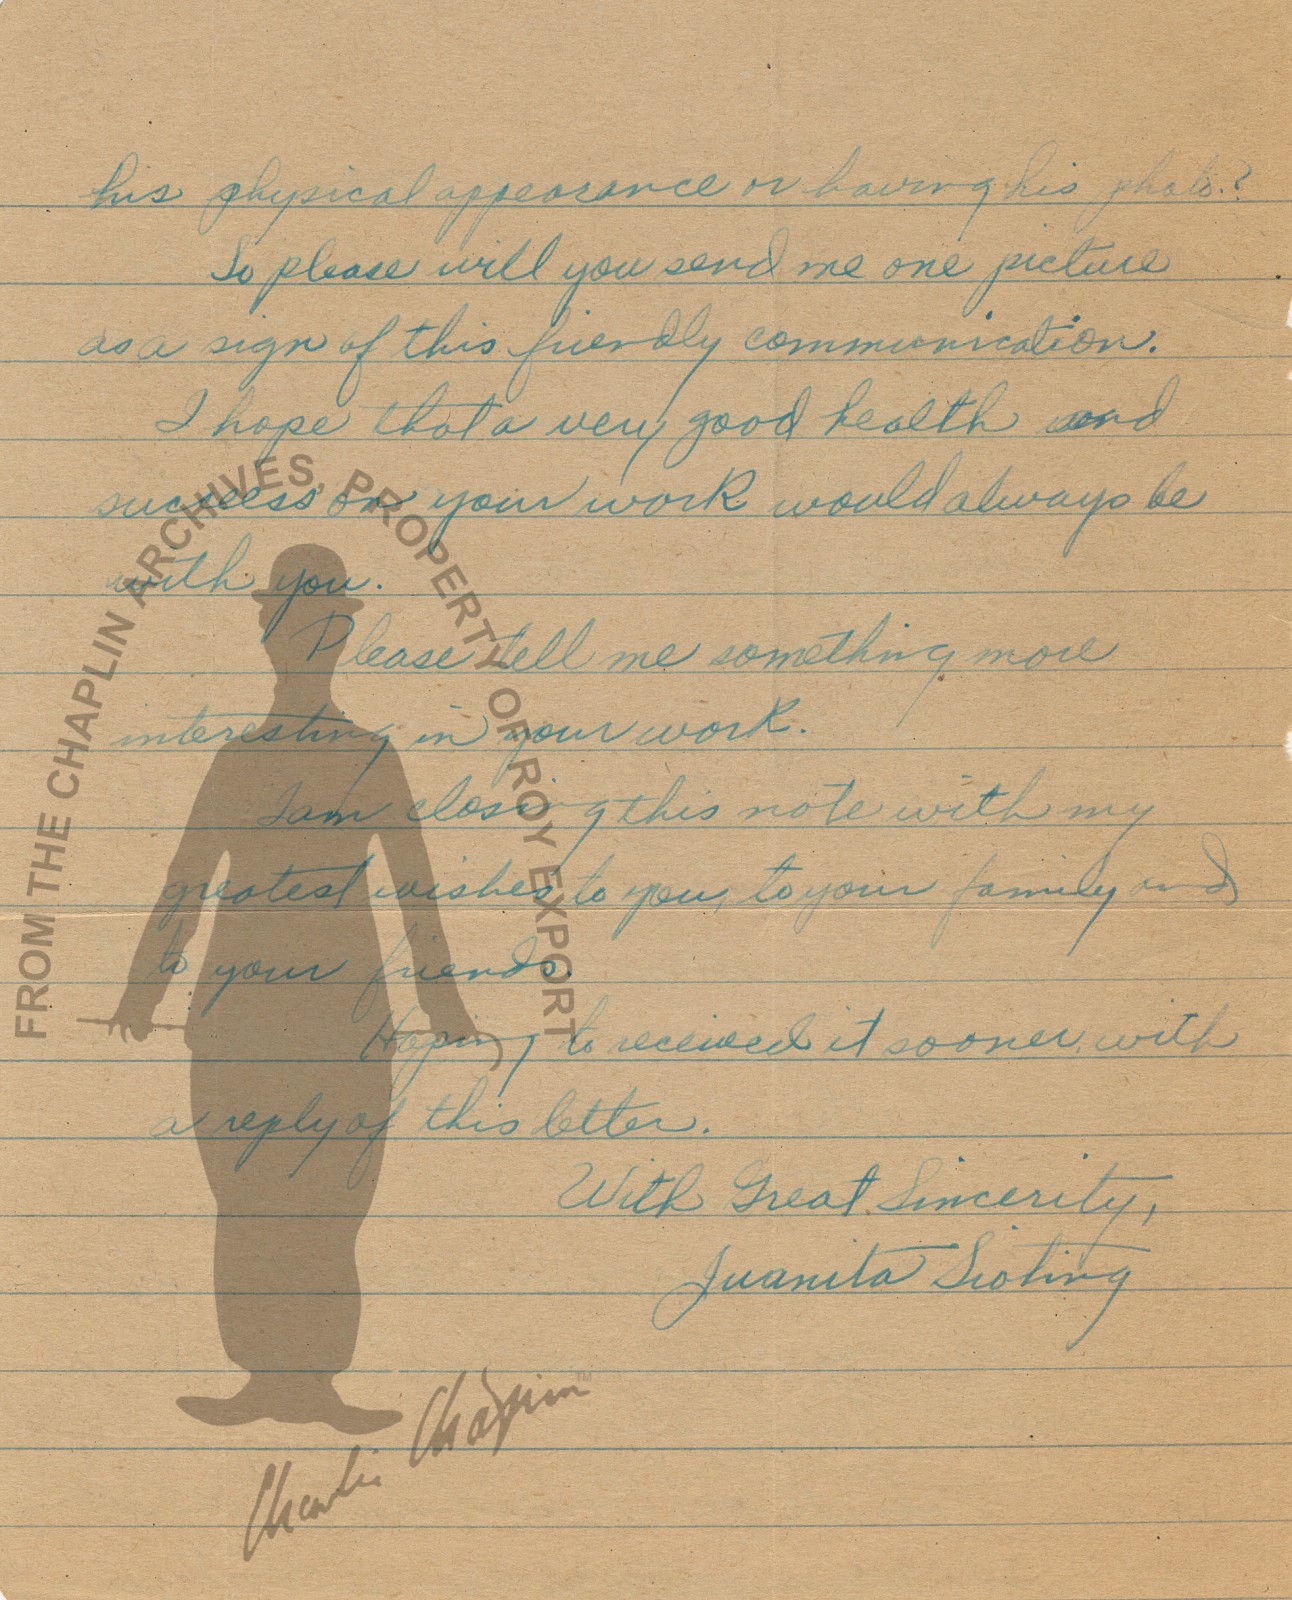 his physical appearance or having his photo.?
So please will you send me one picture
as a sign of this friendly communication.
I hope that a very good health and
success on your work would always be
with you.
Please tell me something more
interesting in your work.
I am closing this note with my
greatest wishes to you, to your family and
to your friends.
Hoping to received it sooner with
a reply of this letter.
With Great Sincerity,
Juanita Sioting
FROM THE CHAPLIN ARCHIVES, PROPERTY OF ROY EXPORT
Charlie Chaplin™